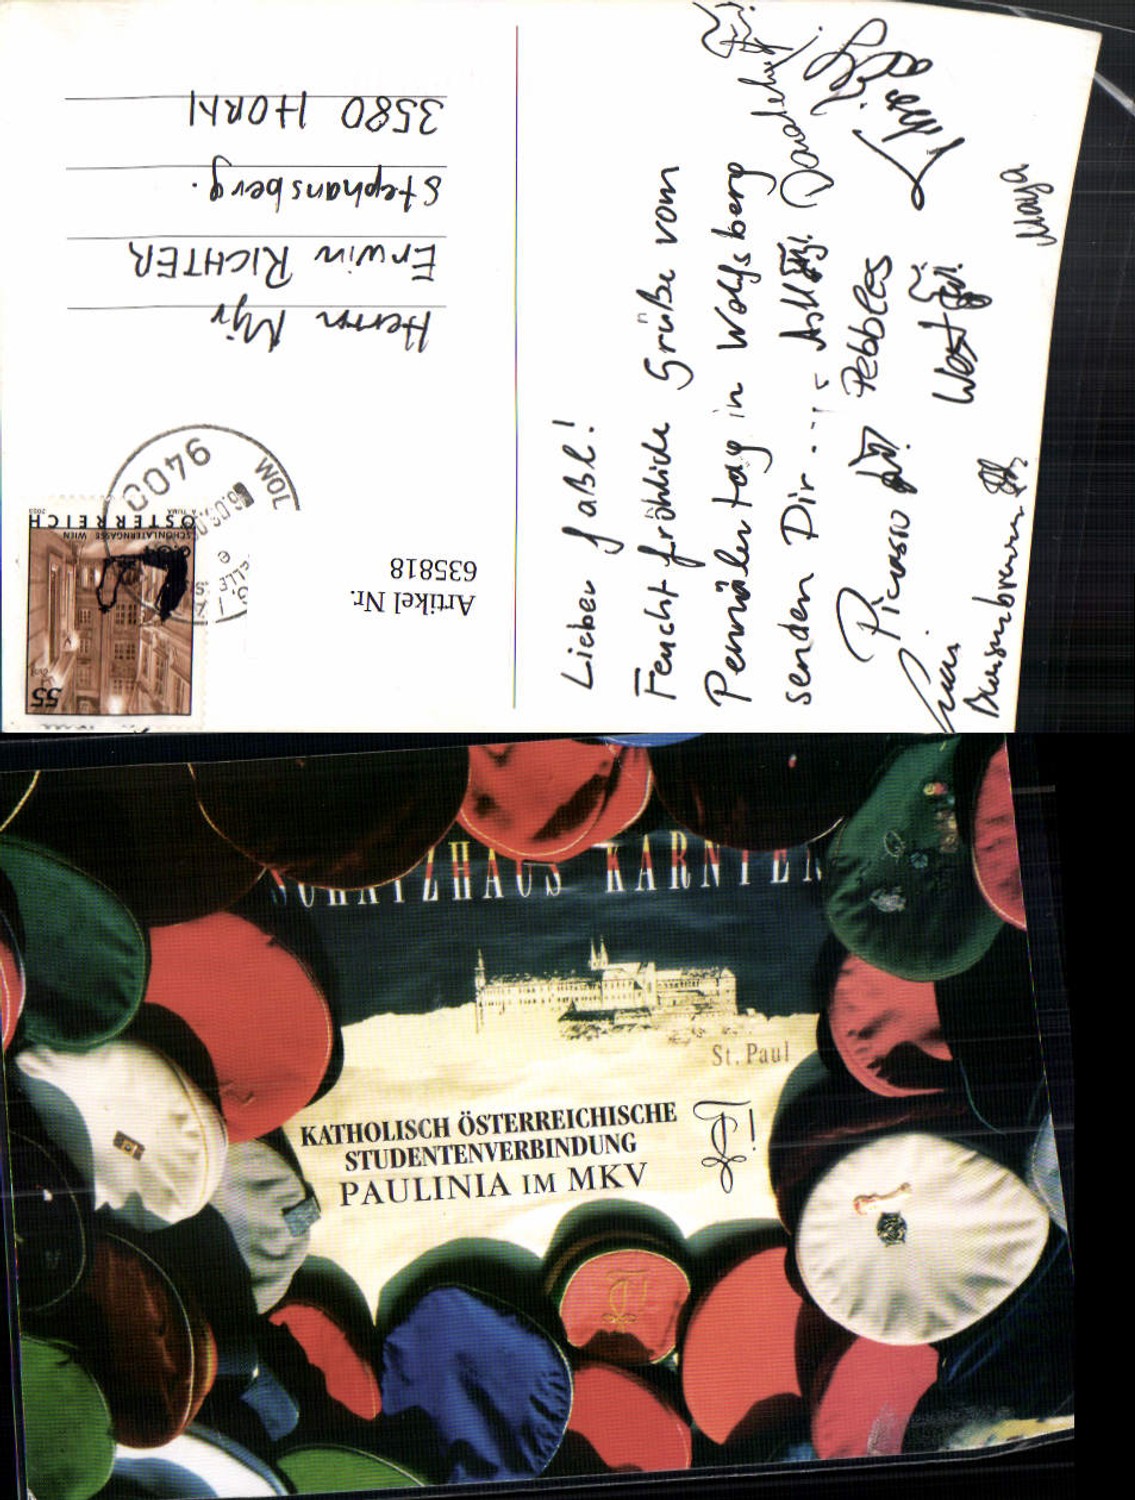 Lieber Faßl!
Feucht fröhliche Grüße vom
Pennälertag in Wolfsberg
senden Dir
Picasso
Pebbles
Maya
Herrn Mjr
Erwin RICHTER
Stephansberg.
3580 HORN
Artikel Nr.
635818
55
SCHÖNLATERNGASSE WIEN
ÖSTERREICH
9400
WOL
SCHATZHAUS KÄRNTEN
St. Paul
KATHOLISCH ÖSTERREICHISCHE
STUDENTENVERBINDUNG
PAULINIA IM MKV